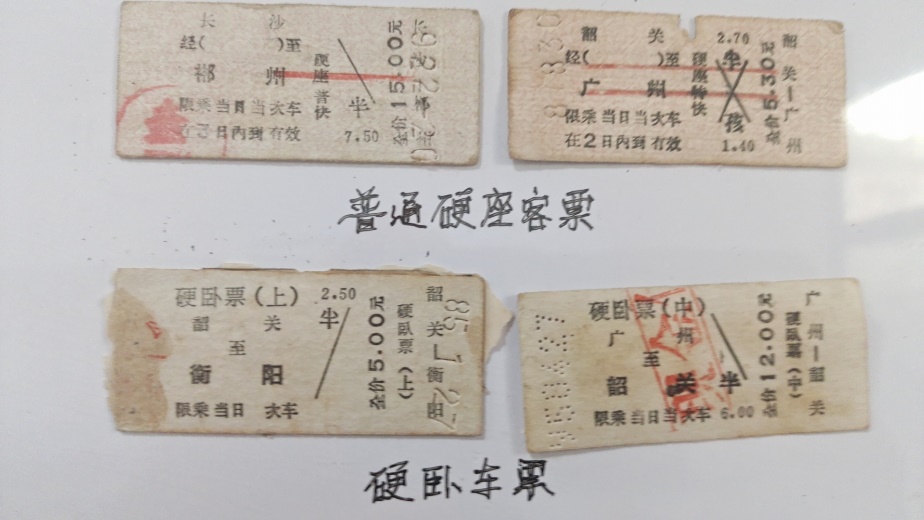 长 沙
经( )至
郴 州
硬座普快
限乘当日当次车
在3日内到有效
半
7.50
全价15.00元
韶 关
2.70
经( )至
广 州
硬座特快
半
孩
1.40
限乘当日当次车
在2日内到有效
全价5.30元
韶关—广州
普通硬座客票
硬卧票(上) 2.50
韶 关 半
至
衡 阳
限乘当日 次车
全价5.00元
硬卧票(上)
韶关—衡阳
85 1 27
硬卧票(中)
广 州
至
韶 关 半
限乘当日当次车 6.00
全价12.00元
硬卧票(中)
广州—韶关
硬卧车票